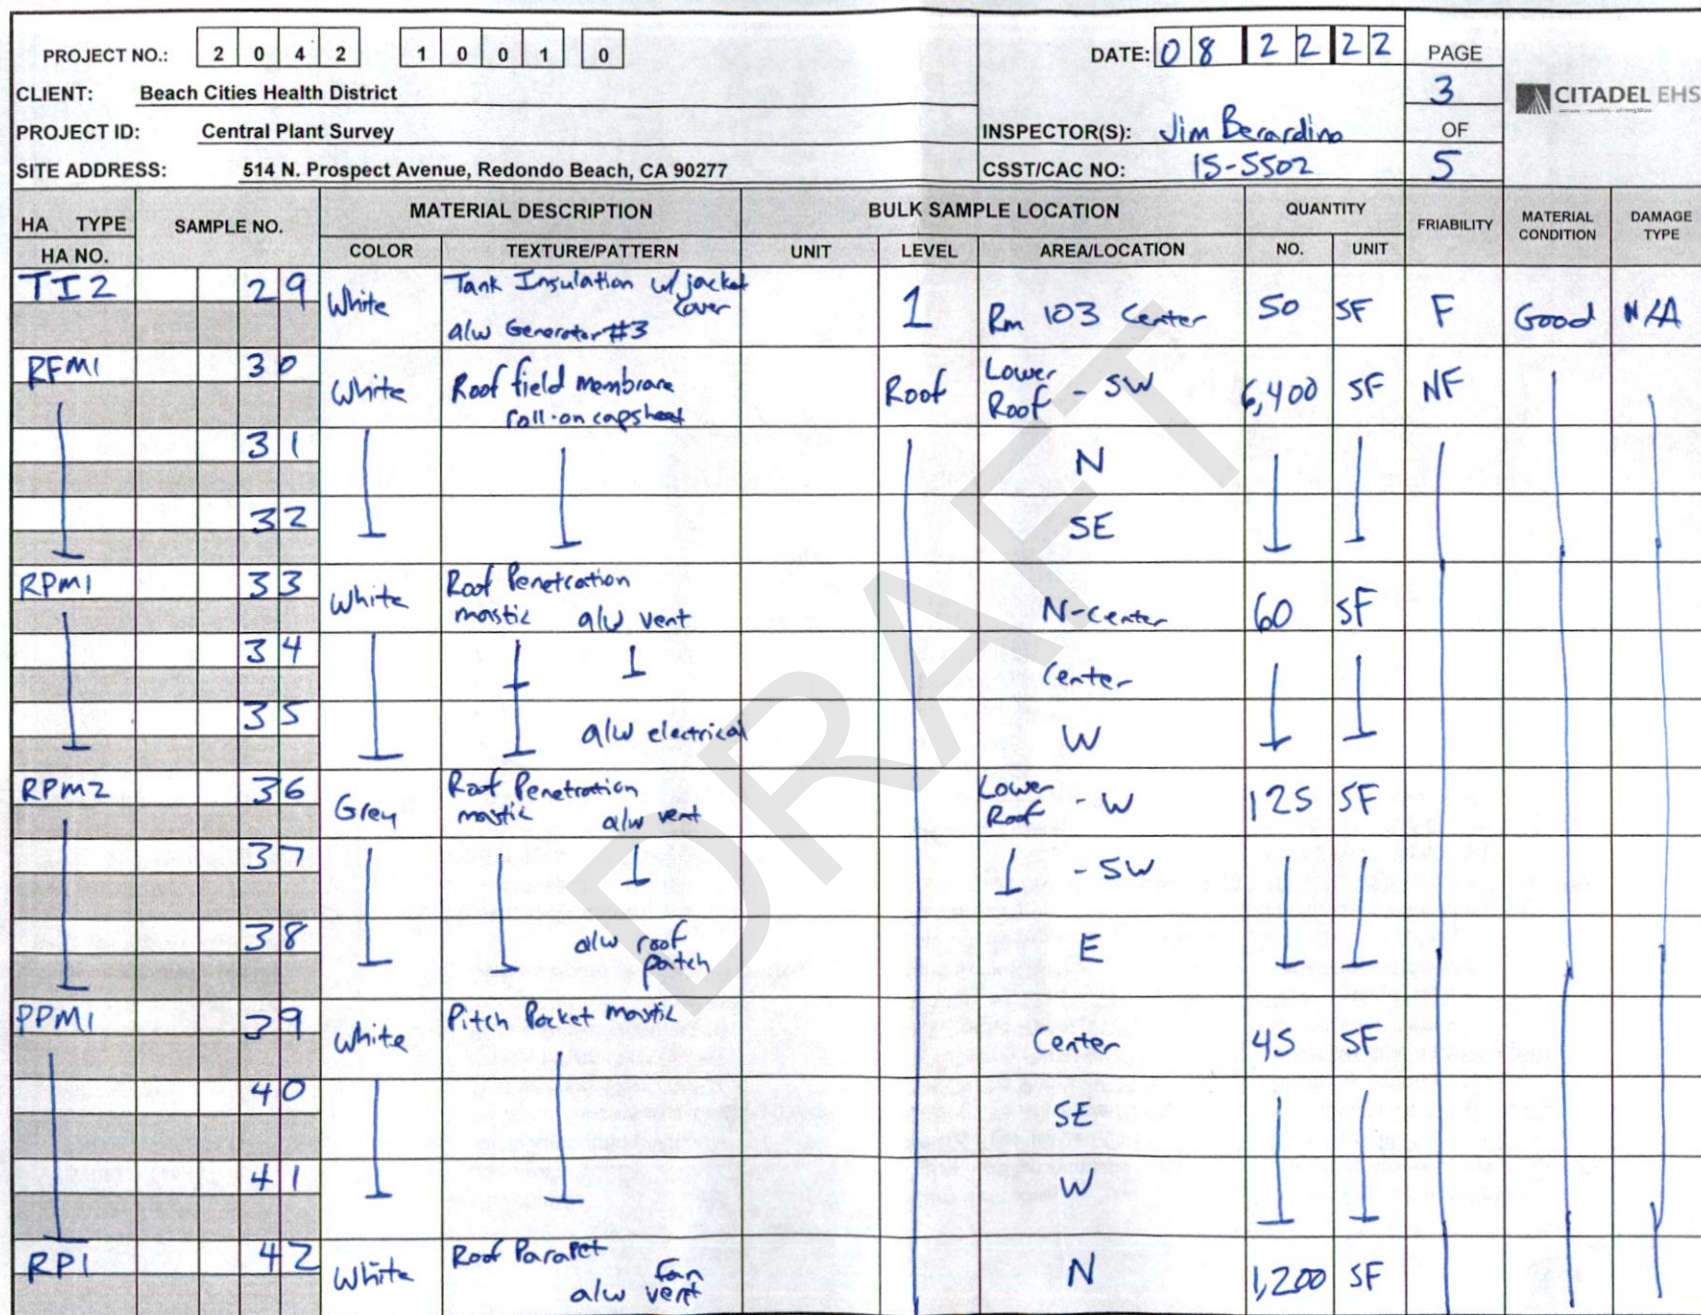 PROJECT NO.: 2 0 4 2 1 0 0 1 0
DATE: 0 8 2 2 2 2
PAGE
CLIENT: Beach Cities Health District
3
CITADEL EHS
PROJECT ID: Central Plant Survey
INSPECTOR(S): Jim Berardino
OF
SITE ADDRESS: 514 N. Prospect Avenue, Redondo Beach, CA 90277
CSST/CAC NO: 15-5502
5
HA TYPE
HA NO.
SAMPLE NO.
MATERIAL DESCRIPTION
COLOR
TEXTURE/PATTERN
BULK SAMPLE LOCATION
UNIT
LEVEL
AREA/LOCATION
QUANTITY
NO.
UNIT
FRIABILITY
MATERIAL CONDITION
DAMAGE TYPE
TI2 29 White Tank Insulation w/ jacket cover
a/w Generator #3 1 Rm 103 Center 50 SF F Good N/A
RFM1 30 White Roof field membrane
roll-on capsheet Roof Lower Roof - SW 6,400 SF NF
31 N
32 SE
RPM1 33 White Roof Penetration
mastic a/w vent N-Center 60 SF
34 Center
35 a/w electrical W
RPM2 36 Grey Roof Penetration
mastic a/w vent Lower Roof - W 125 SF
37 - SW
38 a/w roof patch E
PPM1 39 White Pitch Pocket mastic Center 45 SF
40 SE
41 W
RP1 42 White Roof Parapet
a/w fan vent N 1,200 SF
DRAFT